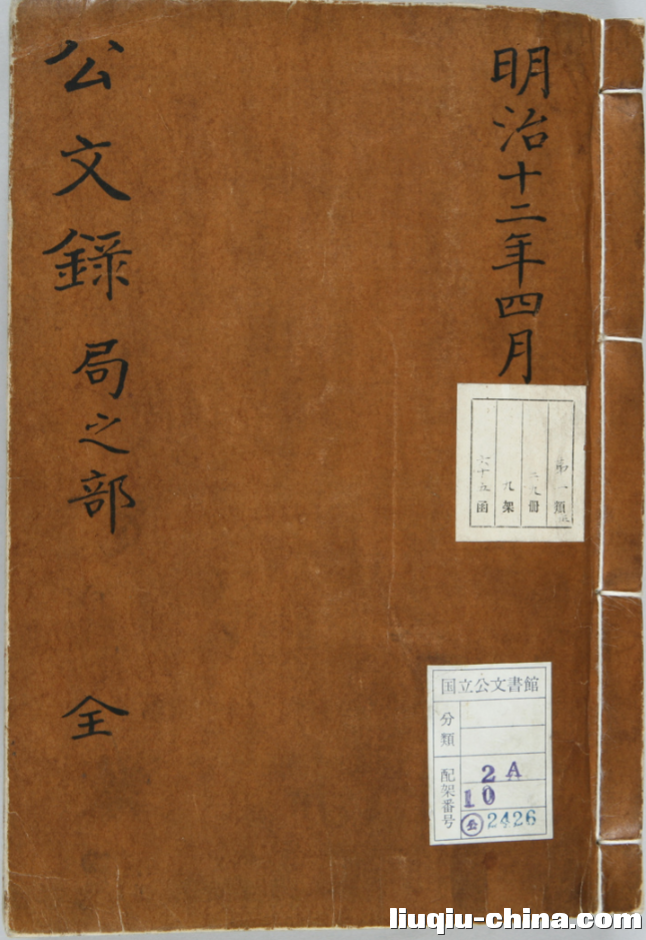 明治十二年四月
公文録 局之部 全
第一類
二九冊
九架
六十五函
国立公文書館
分類
配架番号
2A
10
公2426
liuqiu-china.com